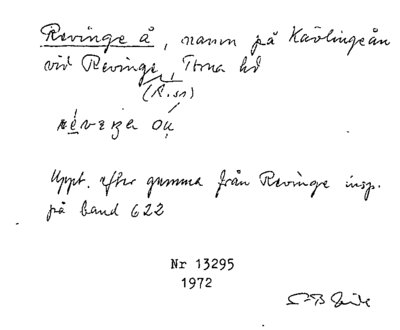 Revinge å, namn på Kävlingeån
vid Revinge, Torna hd
(R. sn)
Uppt. efter gumma från Revinge insp.
på band 622
Nr 13295
1972